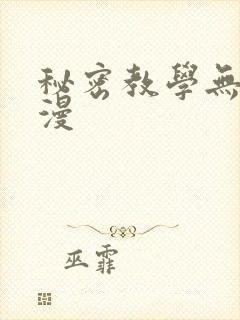 秘密教學無
漫
巫霏